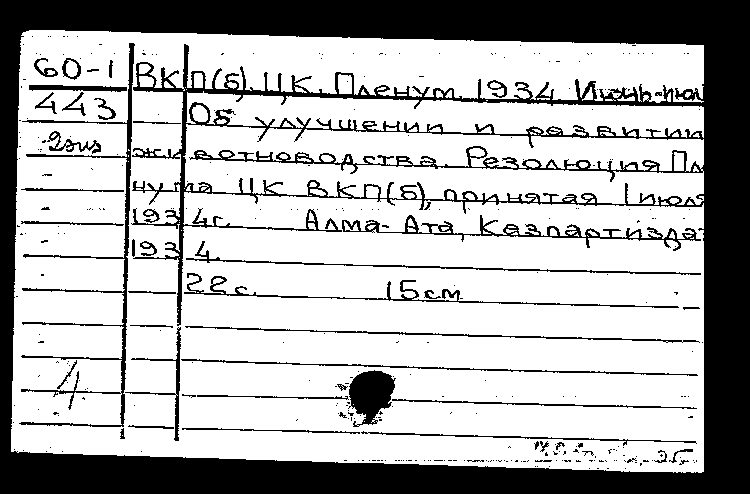 60-1 ВКП(б). ЦК. Пленум. 1934 Июнь-июл
443 Об улучшении и развитии
2экз животноводства. Резолюция Пле
нума ЦК ВКП(б), принятая 1 июля
1934г. Алма-Ата, Казпартиздат
1934.
22с. 15см
4